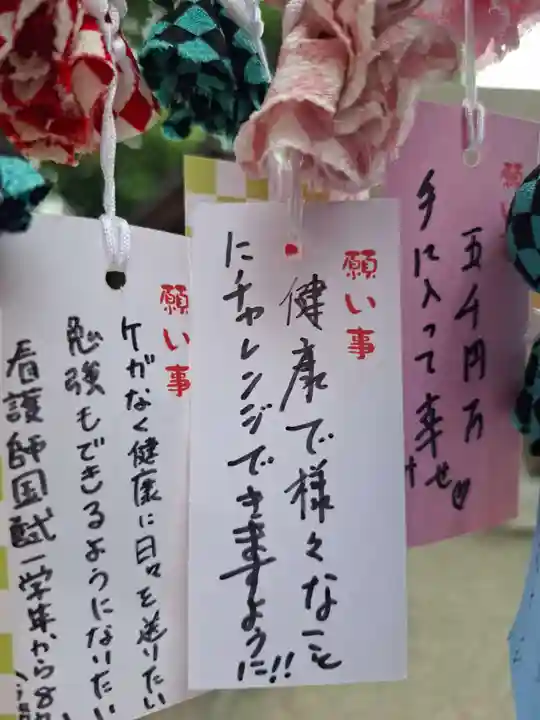 願い事
健康で様々なこと
にチャレンジできますように!!
願い事
ケガなく健康に日々を送りたい
勉強もできるようになりたい
看護師国試一学年から
願い
五千円万
手に入って幸せ♡